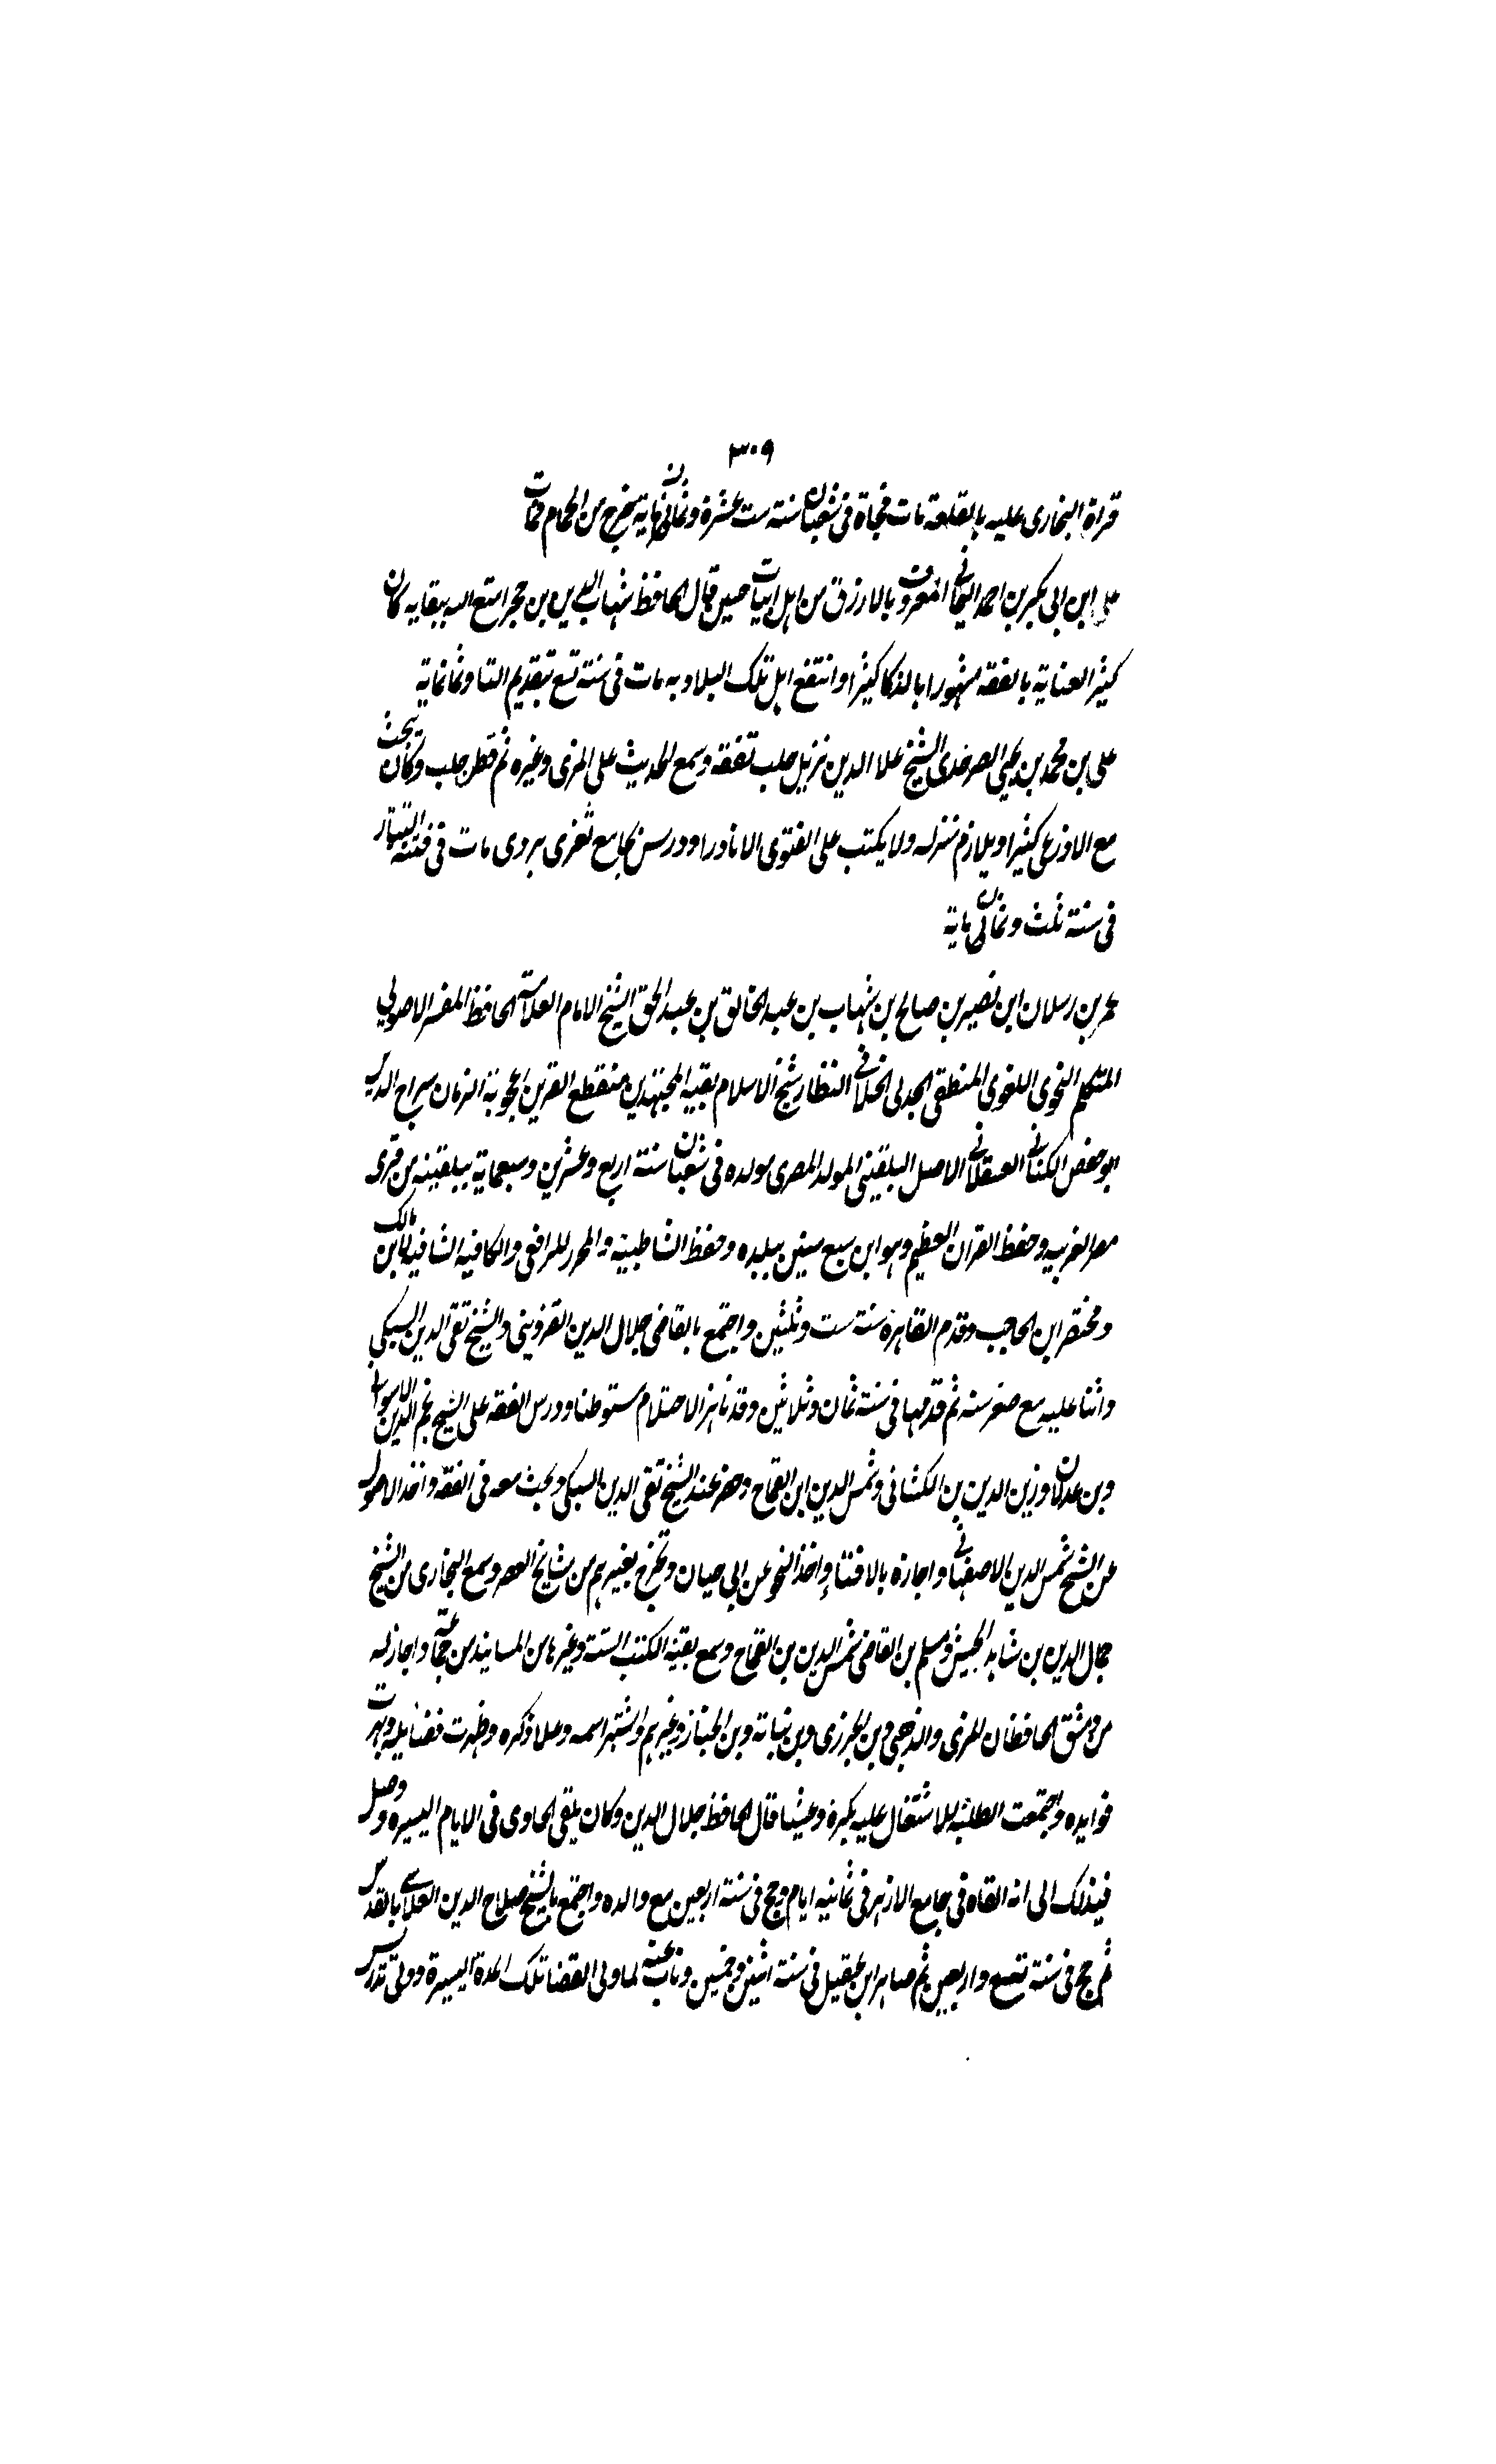 ٣٠٩
قراة البخارى عليه بالقلعة مات فجاة فى شعبان سنة ست عشرة وثمانى ماية خرج من الحمام فمات
على ابن ابى بكر بن احمد اليمانى المعروف بالازرق من اهل ابيات حسين قال الحافظ شهاب الدين بن حجر امتع الله ببقايه كان
كثير العناية بالفقه مشهورا بالذكا كثيرا وانتفع اهل تلك البلاد به مات فى سنة تسع بتقديم التا وثمانماية
على بن محمد بن يحيى الصرخدى الشيخ علا الدين نزيل حلب تفقه وسمع الحديث على المزى وغيره ثم قطن حلب وكان يبحث
مع الاوزعى كثيرا ويلازم منزله ولا يكتب على الفتوى الا نادرا ودرس بجامع تغرى بردى مات فى فتنة التيتار
فى سنة ثلث وثمانى ماية
عمر بن رسلان ابن نصير بن صالح بن شهاب بن عبد الخالق بن عبد الحق الشيخ الامام العلامة الحافظ المفسر الاصولي
المتكلم النحوى اللغوى المنطقى الجدلى الخلافى النظار شيخ الاسلام بقية المجتهدين منقطع القرين اعجوبة الزمان سراج الدين
ابو حفص الكنانى العسقلانى الاصل البلقينى المولد المصرى مولده فى شعبان سنة اربع وعشرين وسبعماية ببلقينه من قرى
مصر الغربيه وحفظ القران العظيم وهو ابن سبع سنين ببلده وحفظ الشاطبية والمحرر للرافعى والكافيه الشافيه لابن مالك
ومختصر ابن الحاجب وقدم القاهرة سنة ست وثلثين واجتمع بالقاضى جلال الدين القزوينى والشيخ تقى الدين السبكي
واثنا عليه مع صغر سنه ثم قدمها فى سنة ثمان وثلاثين وقد ناهز الاحتلام مستوطنا ودرس الفقه على الشيخ نجم الدين الاسوانى
وبن عدلان وزين الدين بن الكتنانى وشمس الدين ابن القماح وحضر عند الشيخ تقى الدين السبكى وبحث معه فى الفقه واخذ الاصول
عن الشيخ شمس الدين الاصفهانى واجازه بالافتاء واخذ النحو عن ابى حيان وتخرج بغيرهم من مشايخ العصر وسمع البخارى من الشيخ
جمال الدين بن شاهد الجيش ومسلم بن القاضى شمس الدين بن القماح وسمع بقية الكتب الستة وغيرها من المسانيد من جماعة واجازله
من دمشق الحافظان المزى والذهبى وبن الجزرى وبن نباتة وبن الخباز وغيرهم واشتهر اسمه وعلا ذكره وظهرت فضايله وبهرت
فوايده واجتمعت الطلبة للاشتغال عليه بكرة وعشيا قال الحافظ جلال الدين وكان يلقى الحاوى فى الايام اليسيره ووصل
فى ذلك الى انه القاه فى جامع الازهر فى ثمانيه ايام وحج فى سنة اربعين مع والده واجتمع بالشيخ صلاح الدين العلائى بالقدس
ثم حج فى سنة تسع واربعين ثم صاهر ابن عقيل فى سنة اثنين وخمسين وناب عنه لما ولى القضا تلك المدة اليسيرة وولى تدريس